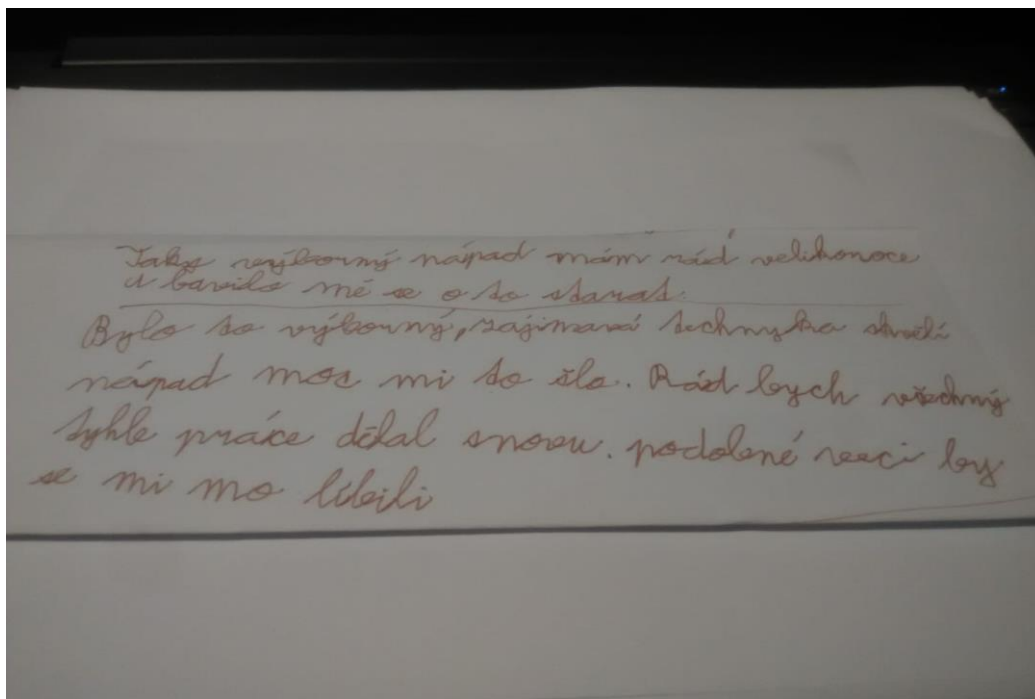 Taky výborný nápad mám rád velikonoce
a bavilo mé se o to starat.
Bylo to výborný, zajimavá technyka skvělí
nápad moc mi to šlo. Rád bych všechný
tyhle práce dělal snovu. podobné veci by
se mi mo líbili